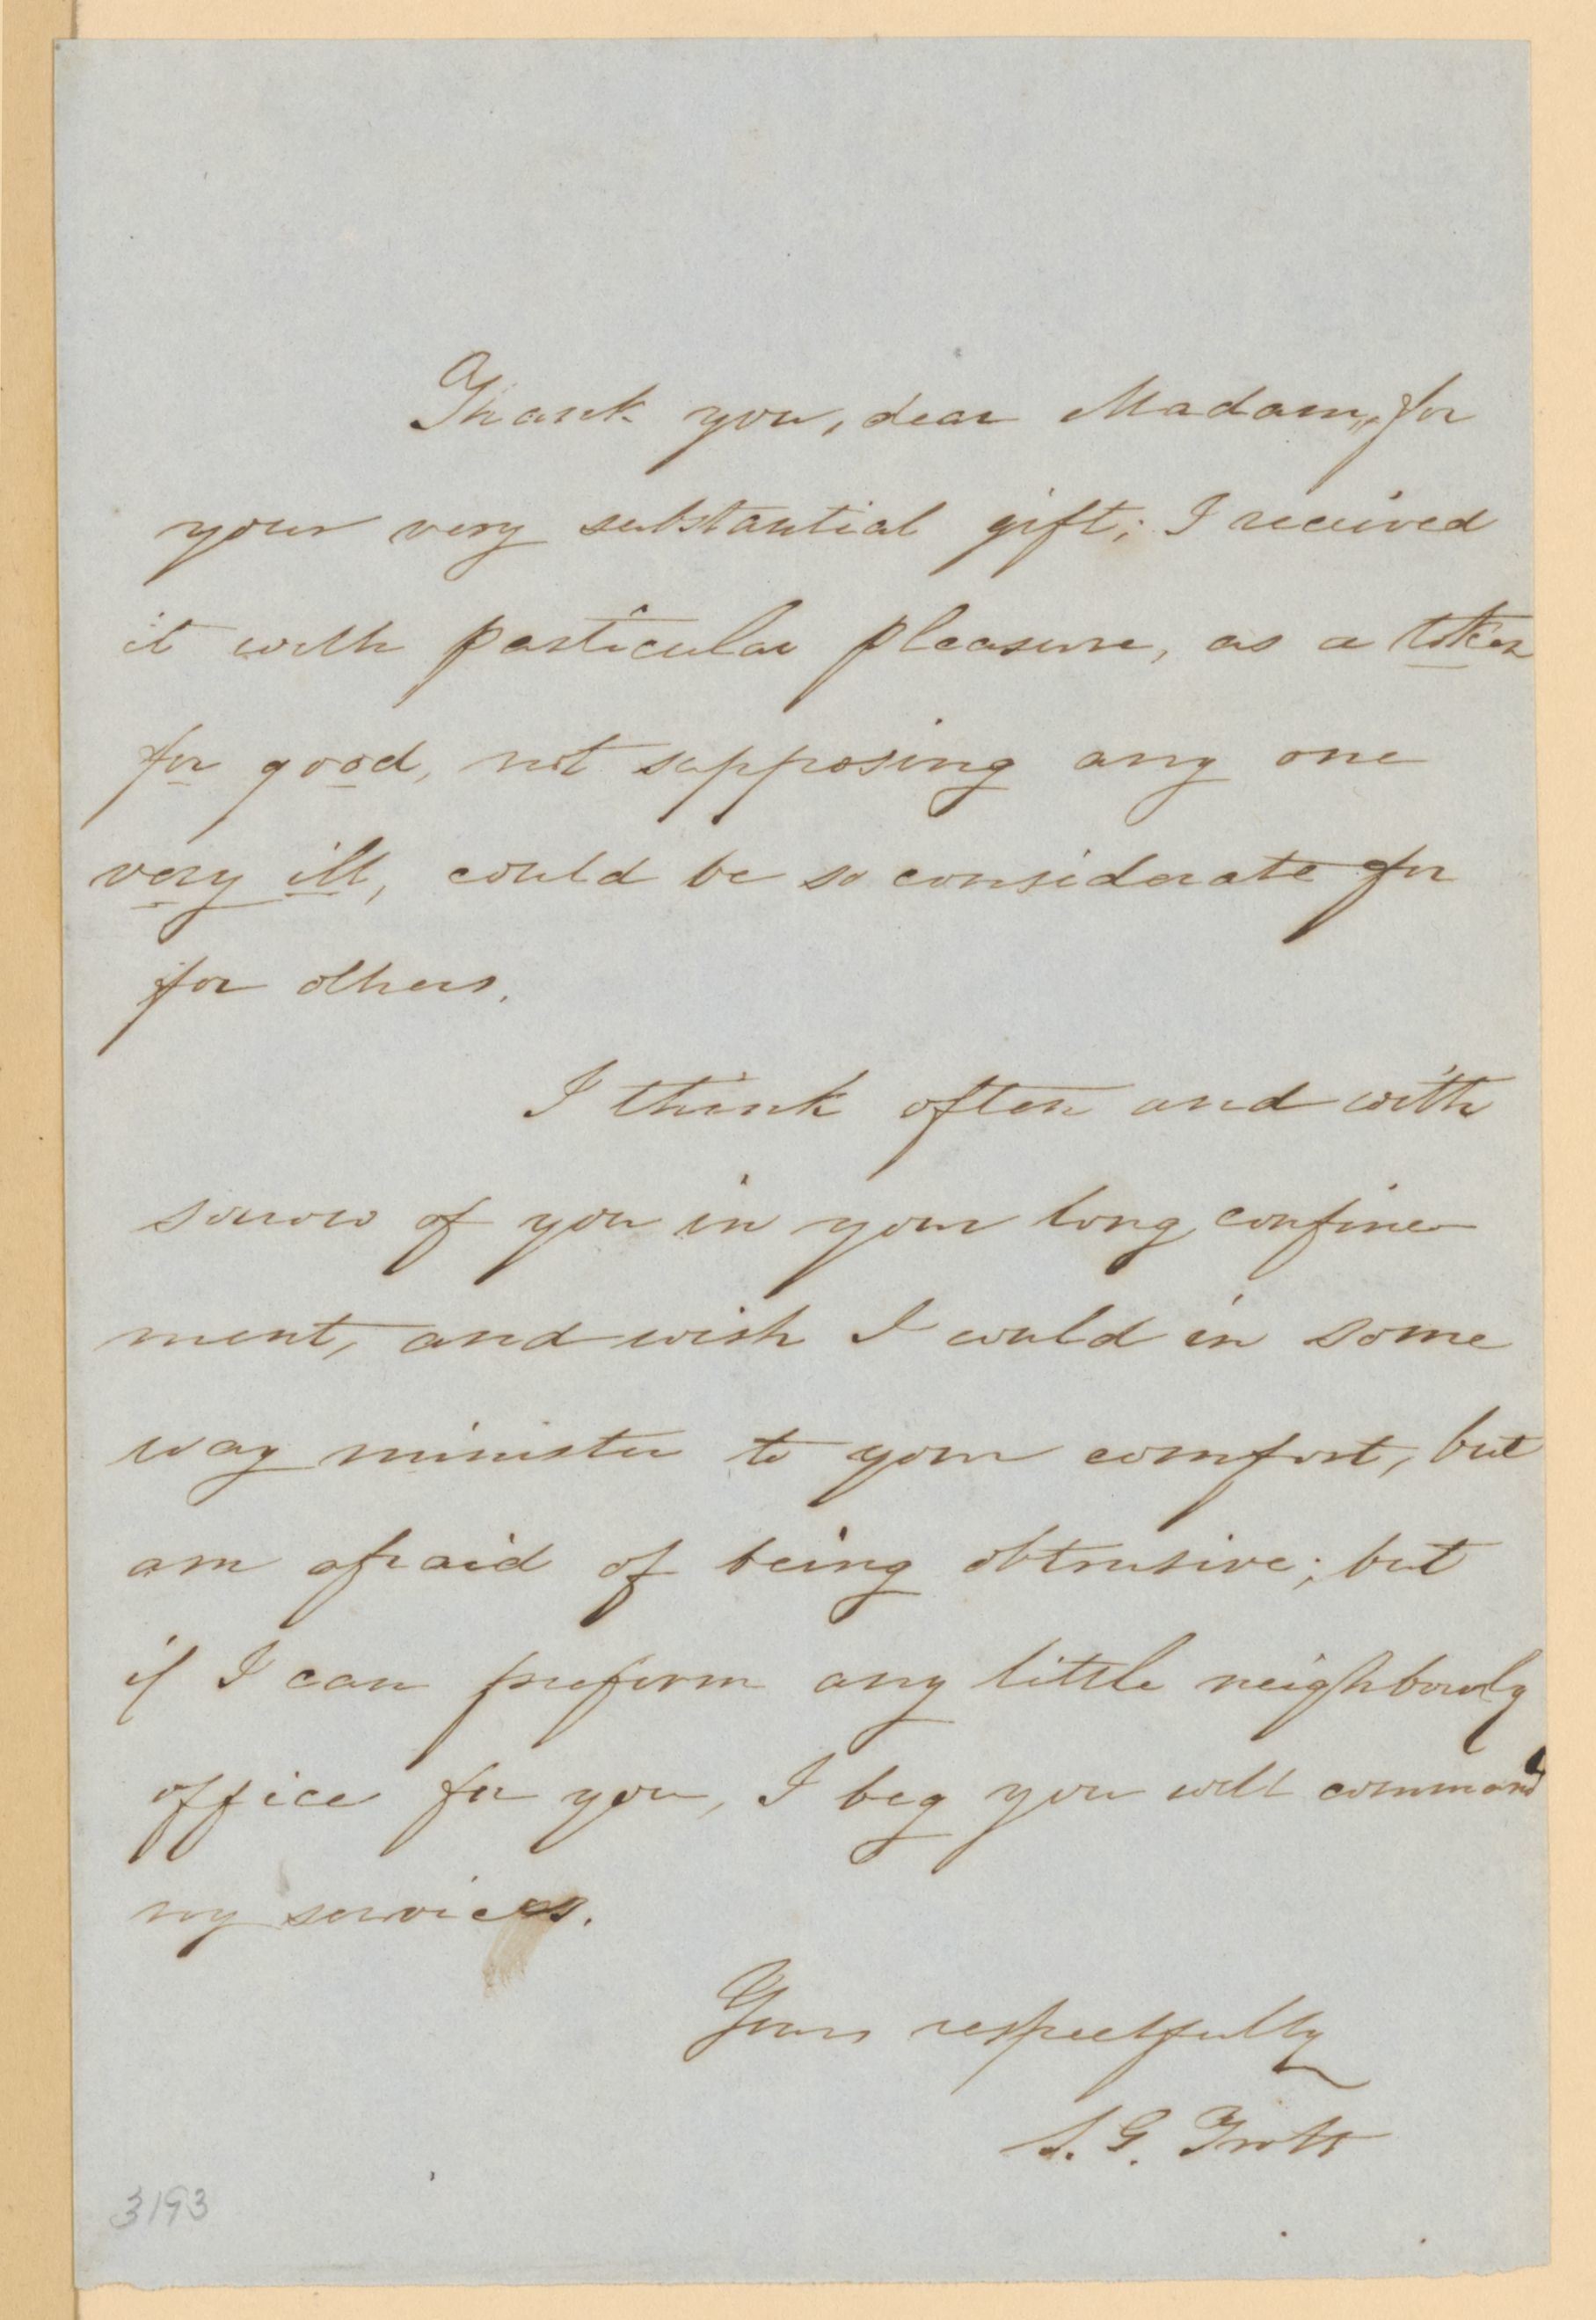 Thank you, dear Madam, for
your very substantial gift; I received
it with particular pleasure, as a token
for good, not supposing any one
very ill, could be so considerate for
for others.
I think often and with
sorrow of you in your long confine
ment, and wish I could in some
way minister to your comfort, but
am afraid of being obtrusive; but
if I can preform any little neighbourly
office for you, I beg you will command
my services.
Yours respectfully
S. G. Trott
3193